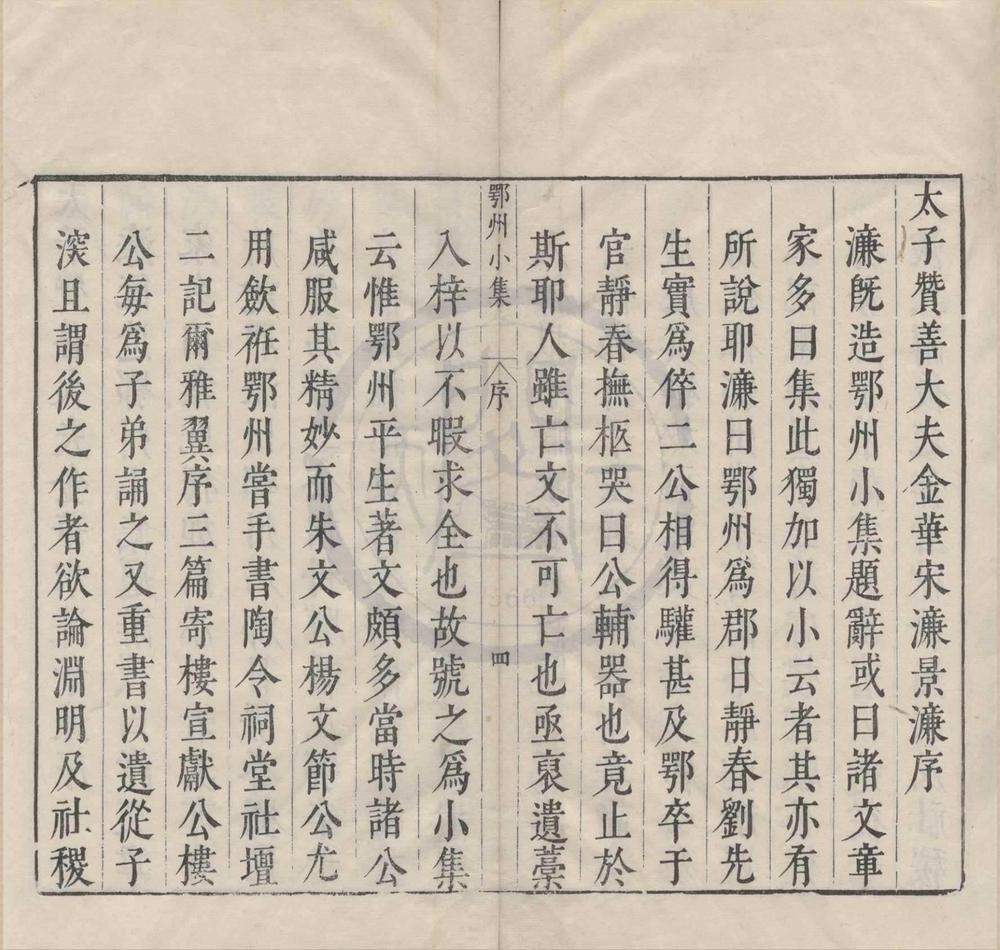 太子贊善大夫金華宋濂景濂序
濂旣造鄂州小集題辭或曰諸文章
家多曰集此獨加以小云者其亦有
所說耶濂曰鄂州爲郡日靜春劉先
生實爲倅二公相得驩甚及鄂卒于
官靜春撫柩哭曰公輔器也竟止於
斯耶人雖亡文不可亡也亟裒遺藁
鄂州小集
序
四
入梓以不暇求全也故號之爲小集
云惟鄂州平生著文頗多當時諸公
咸服其精妙而朱文公楊文節公尤
用歛袵鄂州嘗手書陶令祠堂社壇
二記爾雅翼序三篇寄樓宣獻公樓
公每爲子弟誦之又重書以遺從子
滐且謂後之作者欲論淵明及社稷